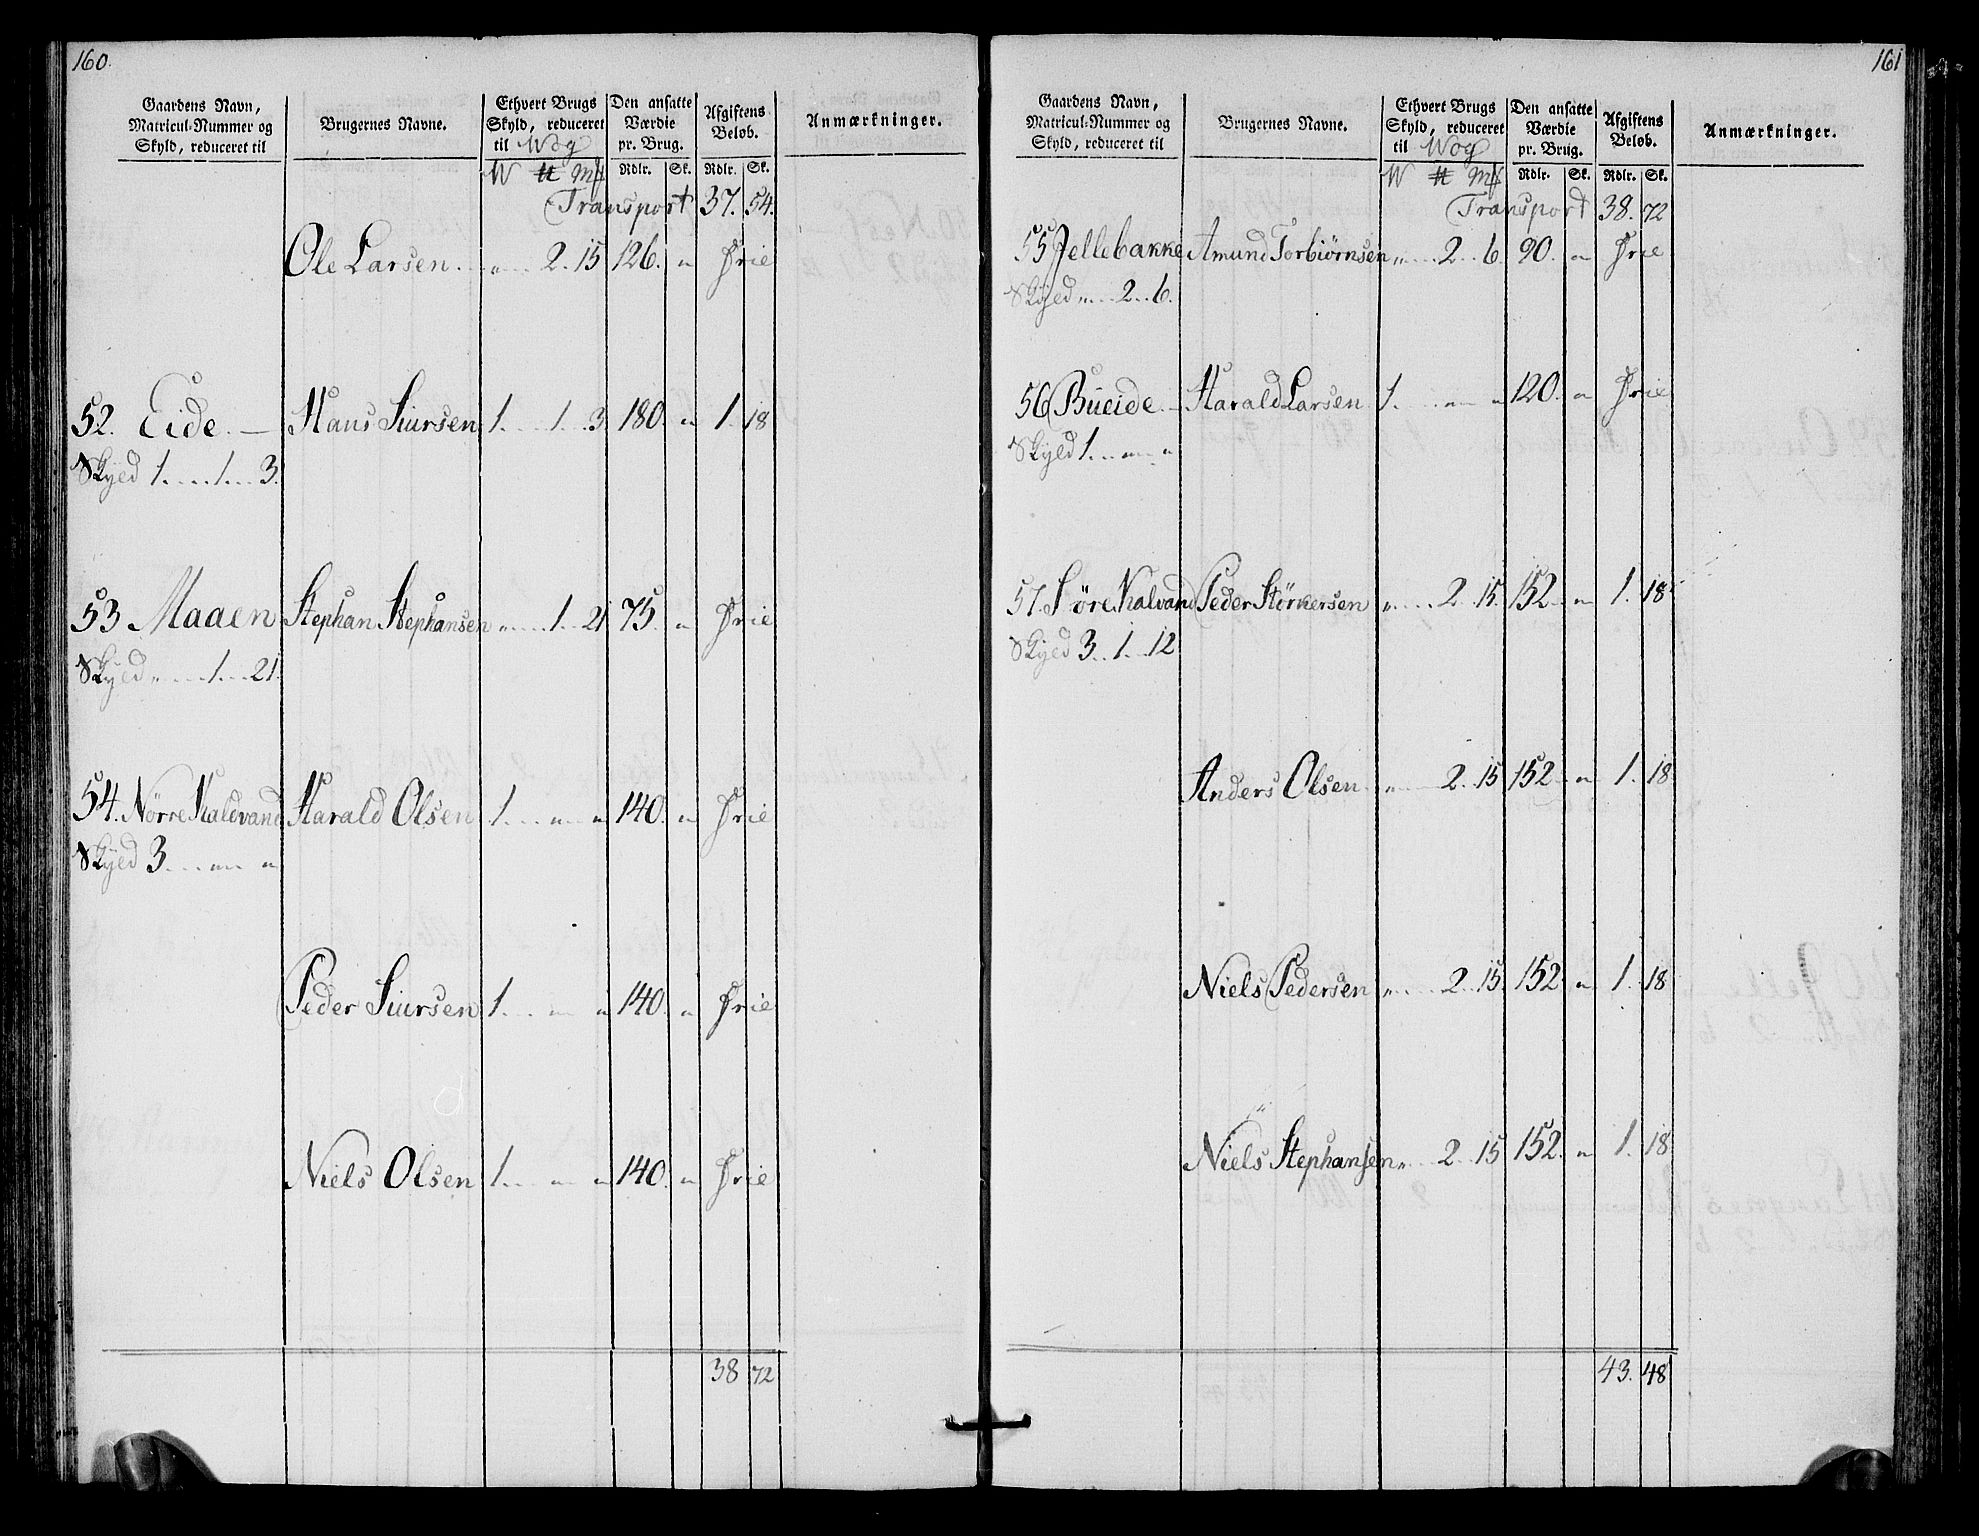 160.
Gaardens Navn, Matricul-Nummer og Skyld, reduceret til
Brugernes Navne.
Ethvert Brugs Skyld, reduceret til Wog
Den ansatte Værdie pr. Brug.
Afgiftens Beløb.
Anmærkninger.
W # Mk Rdlr. Sk. Rdlr. Sk.
Transport 37. 54.
Ole Larsen „ 2. 15 126. „ Frie
52. Eide. — Hans Siursen 1. 1. 3 180. „ 1. 18
Skyld 1. 1. 3.
53 Maaen Stephan Stephansen „ 1. 21 75. „ Frie
Skyld „ 1. 21.
54. Nørre Kaldvand Harald Olsen 1. „ „ 140. „ Frie
Skyld 3. „ „
Peder Siursen 1. „ „ 140. „ Frie
Niels Olsen 1. „ „ 140. „ Frie
38 72
161
Gaardens Navn, Matricul-Nummer og Skyld, reduceret til
Brugernes Navne.
Ethvert Brugs Skyld, reduceret til Wog
Den ansatte Værdie pr. Brug.
Afgiftens Beløb.
Anmærkninger.
W # Mk Rdlr. Sk. Rdlr. Sk.
Transport 38. 72
55 Jellebakke Amund Torbiørnsen „ 2. 6. 90. „ Frie
Skyld „ 2. 6.
56 Bueide. — Harald Larsen 1. „ „ 120. „ Frie
Skyld 1. „ „
57. Søre Kalvand Peder Størkersen „ 2. 15. 152 „ 1. 18
Skyld 3. 1. 12
Anders Olsen „ 2. 15 152 „ 1. 18
Niels Pedersen „ 2. 15 152 „ 1. 18
Niels Stephansen „ 2. 15 152. „ 1. 18
43. 48